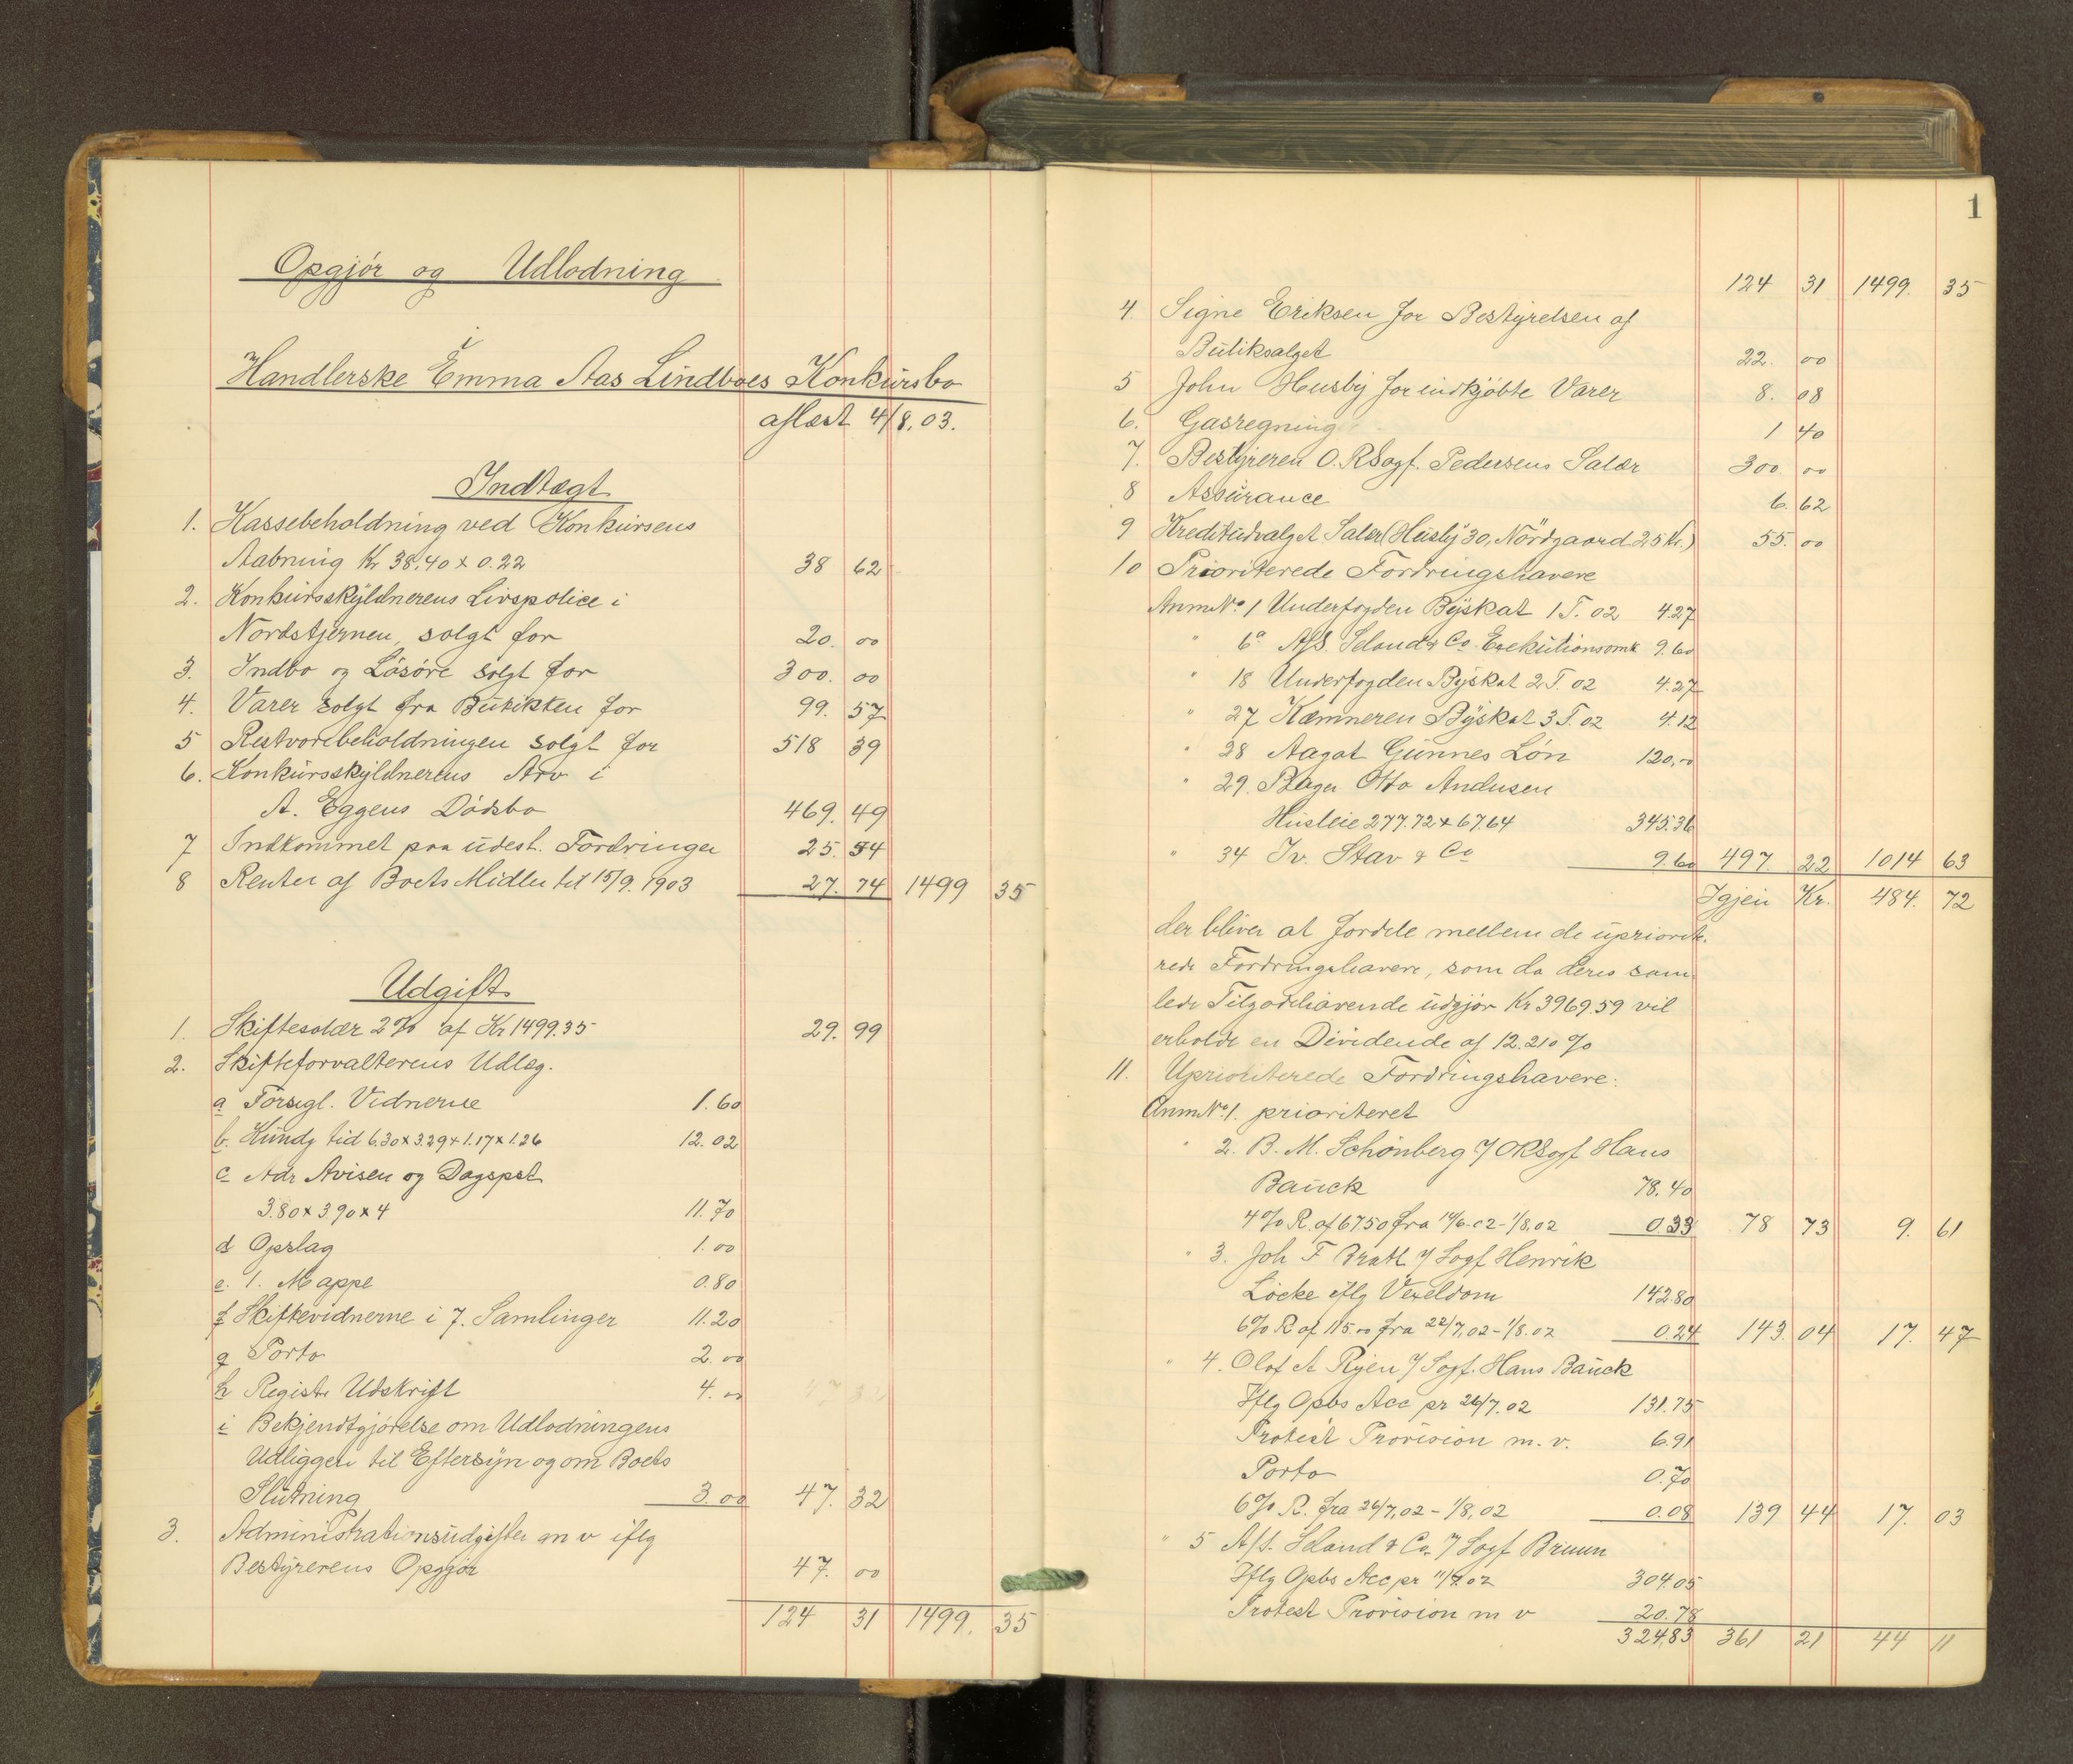 Opgjør og Udlodning
i
Handlerske Emma Aas Lindboes Konkursbo
aflæst 4/8.03.
Indtægt
1. Kassebeholdning ved Konkursens
Aabning Kr 38.40 x 0.22 38 62
2. Konkursskyldnerens Livspolice i
Nordstjernen, solgt for 20. 00
3. Indbo og Løsøre solgt for 300. 00
4. Varer solgt fra Butikken for 99. 57
5 Restvarebeholdningen solgt for 518 39
6. Konkursskyldnerens Arv i
A. Eggens Dødsbo 469. 49
7 Indkommet paa udest. Fordringer 25. 54
8 Renter af Boets Midler til 15/9. 1903 27. 74 1499 35
Udgift
1. Skiftesalær 2% af Kr 1499.35 29. 99
2. Skifteforvalterens Udlæg.
a Forsegl. Vidnerne 1.60
b. Kundg tid 6.30 x 3.29 x 1.17 x 1.26 12.02
c Adr Avisen og Dagspst
3.80 x 3.90 x 4 11.70
d Opslag 1.00
e. 1. Mappe 0.80
f Skiftevidnerne i 7. Samlinger 11.20
g Porto 2.00
h Registr Udskrift 4.00
i Bekjendtgjørelse om Udlodningens
Udliggen til Eftersyn og om Boets
Slutning 3.00 47. 32
3. Administrationsudgifter m v iflg
Bestyrerens Opgjør 47. 00
124 31 1499. 35
1
124 31 1499. 35
4 Signe Eriksen for Bestyrelsen af
Butiksalget 22. 00
5 John Husby for indkjøbte Varer 8. 08
6. Gasregning 1 40
7. Bestyreren O.R.Sagf. Pedersens Salær 300 00
8 Assurance 6. 62
9 Kreditudvalget Salær (Husby 30, Nordgaard 25 Kr.) 55. 00
10 Prioriterede Fordringshavere
Anm No 1 Underfogden Byskat 1 T. 02 4.27
" 6a A/S. Seland & Co. Exekutionsomk 9.60
" 18 Underfogden Byskat 2 T. 02 4.27
" 27 Kæmneren Byskat 3 T. 02 4.12
" 28 Aagot Gunnes Løn 120,00
" 29. Bager Otto Andersen
Husleie 277.72 x 67.64 345.36
" 34 Iv. Stav & Co 9.60 497. 22 1014 63
Igjen Kr. 484. 72
der bliver at fordele mellem de upriorite-
rede Fordringshavere, som da deres sam-
lede Tilgodehavende udgjør Kr 3969.59 vil
erholde en Dividende af 12.210 %
11. Uprioriterede Fordringshavere:
Anm No. 1. prioriteret
" 2. B. M. Schönberg v/ ORSagf Hans
Bauck 78.40
4% R. af 67.50 fra 14/6.02 - 1/8.02 0.33 78 73 9. 61
" 3. Joh F Bratt v/ Sagf Henrik
Løcke iflg Vexeldom 142.80
6% R af 115.00 fra 22/7.02 - 1/8.02 0.24 143. 04 17. 47
" 4. Olof A Ryen v/ Sagf. Hans Bauck
Iflg Opbs Acc pr 26/7.02 131.75
Protest Provision m. v. 6.91
Porto 0.70
6% R. fra 26/7.02 - 1/8.02 0.08 139 44 17. 03
" 5 A/S. Seland & Co. v/ Sagf Bruun
Iflg Opbs Acc pr 11/7.02 304.05
Protest Provision m v 20.78
324.83 361 21 44 11